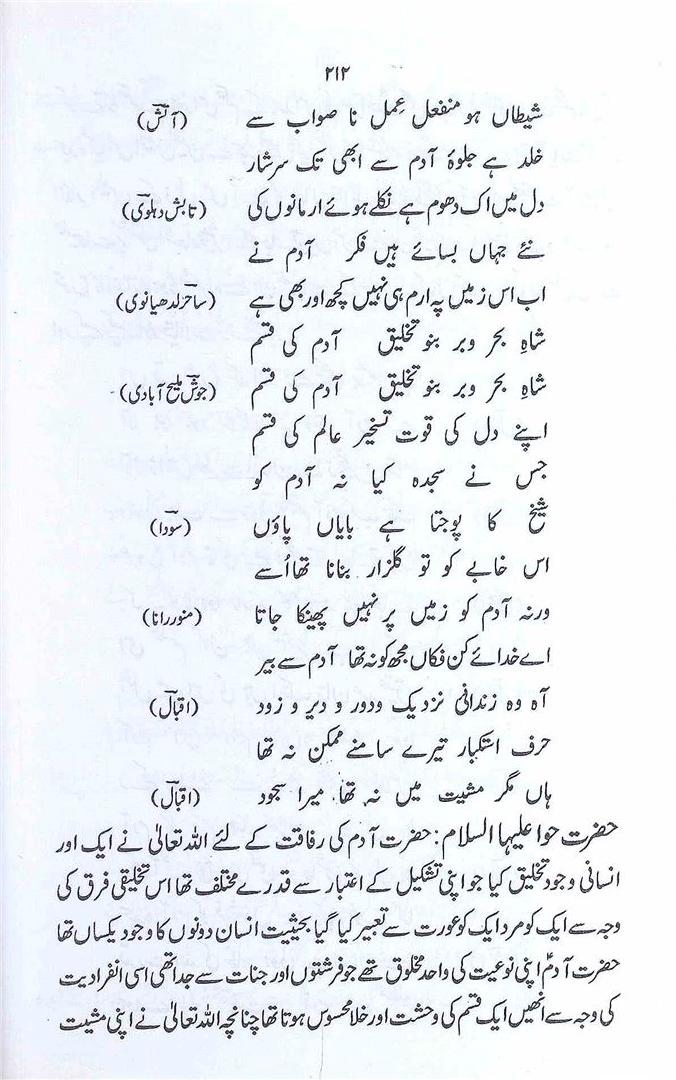 ۲۱۲
شیطاں ہو منفعل عمل نا صواب سے (آتش)
خلد ہے جلوۂ آدم سے ابھی تک سرشار
دل میں اک دھوم ہے نکلے ہوئے ارمانوں کی (تابش دہلوی)
نئے جہاں بسائے ہیں فکر آدم نے
اب اس زمیں پہ ارم ہی نہیں کچھ اور بھی ہے (ساحر لدھیانوی)
شاہِ بحر وبر بنو تخلیق آدم کی قسم
شاہِ بحر وبر بنو تخلیق آدم کی قسم (جوش ملیح آبادی)۔
اپنے دل کی قوت تسخیر عالم کی قسم
جس نے سجدہ کیا نہ آدم کو
شیخ کا پوجتا ہے بایاں پاؤں (سودا)
اس خابے کو تو گلزار بنانا تھا اُسے
ورنہ آدم کو زمیں پر نہیں پھینکا جاتا (منور رانا)
اے خدائے کن فکاں مجھ کو نہ تھا آدم سے بیر
آہ وہ زندانیٔ نزدیک ودور و دیر و زود (اقبال)
حرف استکبار تیرے سامنے ممکن نہ تھا
ہاں مگر مشیت میں نہ تھا میرا سجود (اقبال)
حضرت حوا علیہا السلام: حضرت آدم کی رفاقت کے لئے اللہ تعالیٰ نے ایک اور
انسانی وجود تخلیق کیا جو اپنی تشکیل کے اعتبار سے قدرے مختلف تھا اس تخلیقی فرق کی
وجہ سے ایک کو مرد ایک کو عورت سے تعبیر کیا گیا بحیثیت انسان دونوں کا وجود یکساں تھا
حضرت آدمؑ اپنی نوعیت کی واحد مخلوق تھے جو فرشتوں اور جنات سے جدا تھی اسی انفرادیت
کی وجہ سے انھیں ایک قسم کی وحشت اور خلا محسوس ہوتا تھا چنانچہ اللہ تعالیٰ نے اپنی مشیت